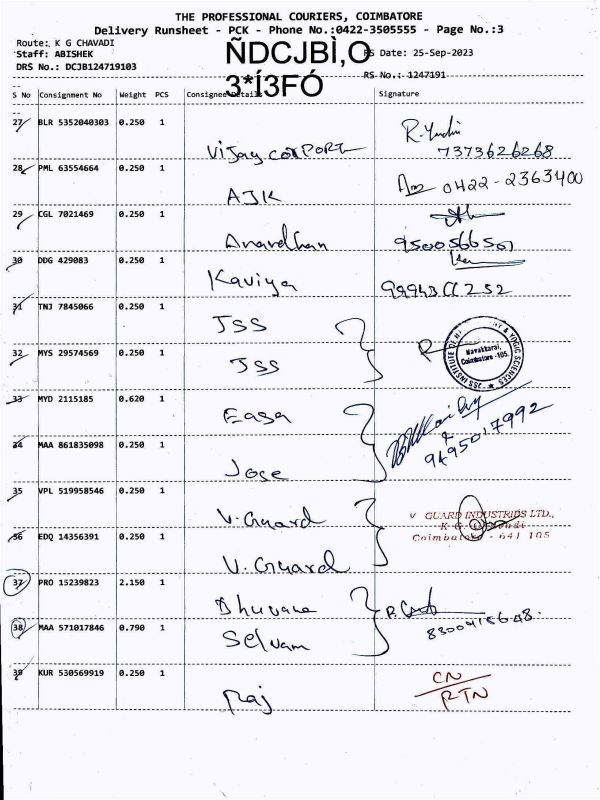 THE PROFESSIONAL COURIERS, COIMBATORE
Delivery Runsheet - PCK - Phone No.:0422-3505555 - Page No.:3
Route: K G CHAVADI
Staff: ABISHEK
DRS No.: DCJB124719103
ÑDCJBÌ,O
3*Í3FÓ
RS Date: 25-Sep-2023
RS No.: 1247191
S No Consignment No Weight PCS Consignee Details Signature
27 BLR 5352040303 0.250 1
Vijay CORPORT 7373626268
28 PML 63554664 0.250 1
AJK 0422-2363400
29 CGL 7021469 0.250 1
Anandhan
30 DDG 429083 0.250 1
Kaviya
31 TNJ 7845066 0.250 1
JSS
32 MYS 29574569 0.250 1
JSS
JSS INSTITUTE OF & YOGIC SCIENCES
Navakkarai,
Coimbatore -105.
33 MYD 2115185 0.620 1
Easa
9495017992
34 MAA 861835098 0.250 1
Jose
35 VPL 519958546 0.250 1
V. Guard
V GUARD INDUSTRIES LTD.,
K G
Coimbatore - 641 105
36 EDQ 14356391 0.250 1
V. Guard
37 PRO 15239823 2.150 1
Bhuvana
38 MAA 571017846 0.790 1
Selvam
39 KUR 530569919 0.250 1
Raj
CN
RTN